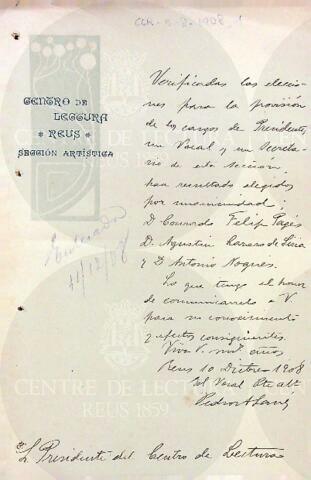 CCR-5-8-1908_1
CENTRO DE
LECTURA
REUS
SECCIÓN ARTÍSTICA
Verificadas las eleccio-
nes para la provisión
de los cargos de Presidente,
un Vocal y un Secreta-
rio de esta Sección,
han resultado elegidos
por unanimidad;
D Conrado Felip Pagés
D. Agustin de
y D Antonio Nogués.
Lo que tengo el honor
de comunicarselo a V
para su conocimiento
y efectos consiguientes.
Viva V. mil años
Reus 10 Dicbre 1908
El Vocal Pte
Pedro A
Enterado
11/12/08
CENTRE DE LECTURA
REUS 1859
Sr. Presidente del Centro de Lectura